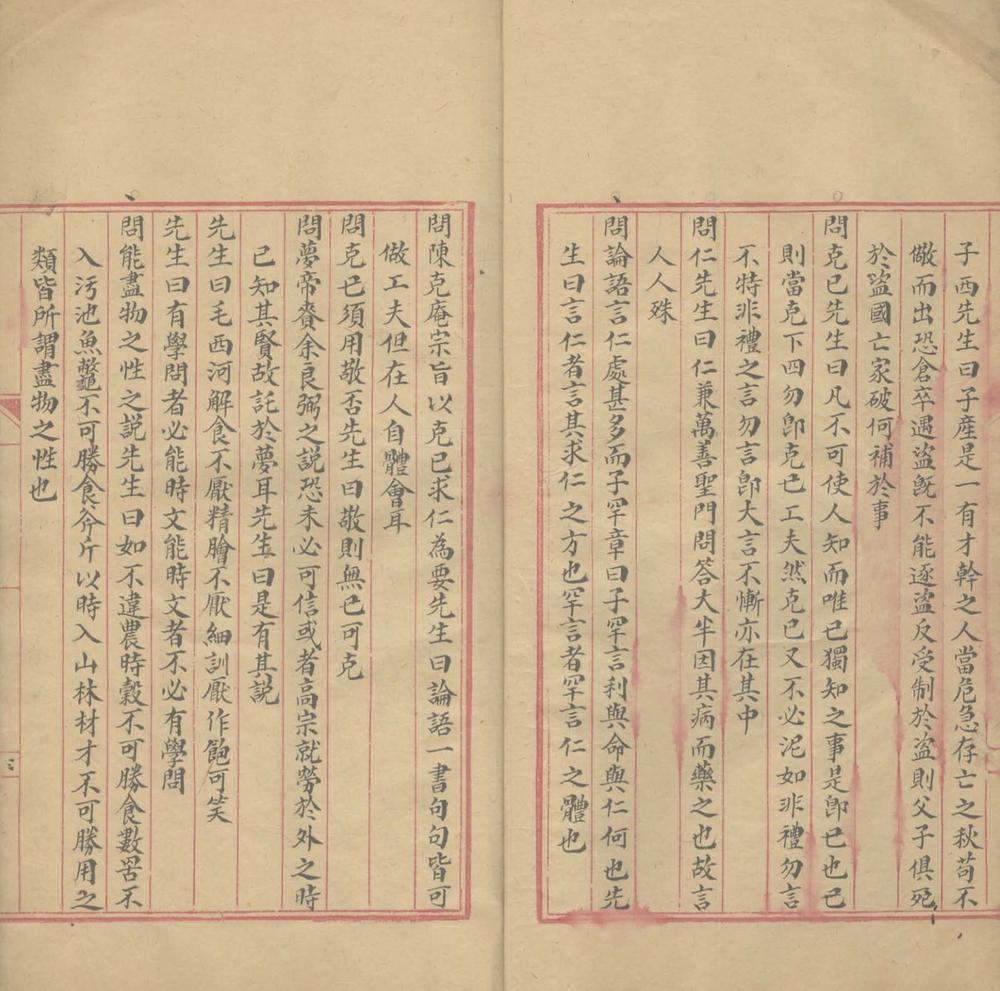 子西先生曰子產是一有才幹之人當危急存亡之秋苟不
儆而出恐倉卒遇盜旣不能逐盜反受制於盜則父子俱死
於盜國亡家破何補於事
問克己先生曰凡不可使人知而唯己獨知之事是卽己也己
則當克下四勿卽克己工夫然克己又不必泥如非禮勿言
不特非禮之言勿言卽大言不慚亦在其中
問仁先生曰仁兼萬善聖門問答大半因其病而藥之也故言
人人殊
問論語言仁處甚多而子罕章曰子罕言利與命與仁何也先
生曰言仁者言其求仁之方也罕言者罕言仁之體也
問陳克庵宗旨以克己求仁為要先生曰論語一書句句皆可
做工夫但在人自體會耳
問克己須用敬否先生曰敬則無己可克
問夢帝賚余良弼之說恐未必可信或者高宗就勞於外之時
已知其賢故託於夢耳先生曰是有其說
先生曰毛西河解食不厭精膾不厭細訓厭作飽可笑
先生曰有學問者必能時文能時文者不必有學問
問能盡物之性之說先生曰如不違農時穀不可勝食數罟不
入污池魚鼈不可勝食斧斤以時入山林材才不可勝用之
類皆所謂盡物之性也